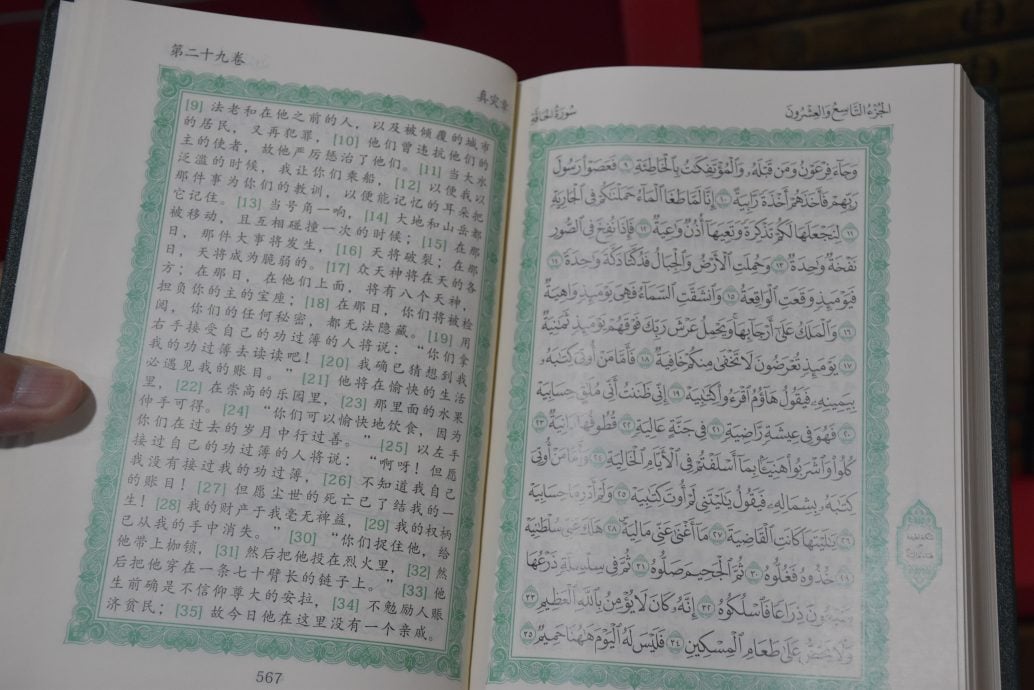 第二十九卷
真实章
[9] 法老和在他之前的人，以及被倾覆的城市
的居民，又再犯罪，[10] 他们曾违抗他们的
主的使者，故他严厉惩治了他们。[11] 当大水
泛滥的时候，我让你们乘船，[12] 以便我以
那件事为你们的教训，以便能记忆的耳朵把
它记住。[13] 当号角一响，[14] 大地和山岳都
被移动，且互相碰撞一次的时候；[15] 在那
日，那件大事将发生，[16] 天将破裂；在那
日，天将成为脆弱的。[17] 众天神将在天的各
方；在那日，在他们上面，将有八个天神，
担负你的主的宝座；[18] 在那日，你们将被检
阅，你们的任何秘密，都无法隐藏。[19] 用
右手接受自己的功过簿的人将说：“你们拿
我的功过簿去读读吧！[20] 我确已猜想到我
必遇见我的账目。” [21] 他将在愉快的生活
里，[22] 在崇高的乐园里，[23] 那里面的水果
伸手可得。[24] “你们可以愉快地饮食，因为
你们在过去的岁月中行过善。” [25] 以左手
接过自己的功过簿的人将说：“啊呀！但愿
我没有接过我的功过簿，[26] 不知道我自己
的账目！[27] 但愿尘世的死亡已了结我的一
生！[28] 我的财产于我毫无裨益，[29] 我的权柄
已从我的手中消失。” [30] “你们捉住他，给
他带上枷锁，[31] 然后把他投在烈火里，[32] 然
后把他穿在一条七十臂长的链子上。” [33] 他
生前确是不信仰尊大的安拉，[34] 不勉励人赈
济贫民；[35] 故今日他在这里没有一个亲戚。
567
الجُزءُ التَّاسِعُ وَالعِشْرُونَ
سُورَةُ الحَاقَّة
وَجَآءَ فِرْعَوْنُ وَمَن قَبْلَهُۥ وَٱلْمُؤْتَفِكَٰتُ بِٱلْخَاطِئَةِ ٩ فَعَصَوْا۟ رَسُولَ
رَبِّهِمْ فَأَخَذَهُمْ أَخْذَةً رَّابِيَةً ١٠ إِنَّا لَمَّا طَغَا ٱلْمَآءُ حَمَلْنَٰكُمْ فِى ٱلْجَارِيَةِ
١١ لِنَجْعَلَهَا لَكُمْ تَذْكِرَةً وَتَعِيَهَآ أُذُنٌ وَٰعِيَةٌ ١٢ فَإِذَا نُفِخَ فِى ٱلصُّورِ
نَفْخَةٌ وَٰحِدَةٌ ١٣ وَحُمِلَتِ ٱلْأَرْضُ وَٱلْجِبَالُ فَدُكَّتَا دَكَّةً وَٰحِدَةً ١٤
فَيَوْمَئِذٍ وَقَعَتِ ٱلْوَاقِعَةُ ١٥ وَٱنشَقَّتِ ٱلسَّمَآءُ فَهِىَ يَوْمَئِذٍ وَاهِيَةٌ
١٦ وَٱلْمَلَكُ عَلَىٰٓ أَرْجَآئِهَا وَيَحْمِلُ عَرْشَ رَبِّكَ فَوْقَهُمْ يَوْمَئِذٍ ثَمَٰنِيَةٌ
١٧ يَوْمَئِذٍ تُعْرَضُونَ لَا تَخْفَىٰ مِنكُمْ خَافِيَةٌ ١٨ فَأَمَّا مَنْ أُوتِىَ كِتَٰبَهُۥ
بِيَمِينِهِۦ فَيَقُولُ هَآؤُمُ ٱقْرَءُوا۟ كِتَٰبِيَهْ ١٩ إِنِّى ظَنَنتُ أَنِّى مُلَٰقٍ حِسَابِيَهْ
٢٠ فَهُوَ فِى عِيشَةٍ رَّاضِيَةٍ ٢١ فِى جَنَّةٍ عَالِيَةٍ ٢٢ قُطُوفُهَا دَانِيَةٌ ٢٣
كُلُوا۟ وَٱشْرَبُوا۟ هَنِيٓـًٔۢا بِمَآ أَسْلَفْتُمْ فِى ٱلْأَيَّامِ ٱلْخَالِيَةِ ٢٤ وَأَمَّا مَنْ أُوتِىَ
كِتَٰبَهُۥ بِشِمَالِهِۦ فَيَقُولُ يَٰلَيْتَنِى لَمْ أُوتَ كِتَٰبِيَهْ ٢٥ وَلَمْ أَدْرِ مَا حِسَابِيَهْ
٢٦ يَٰلَيْتَهَا كَانَتِ ٱلْقَاضِيَةَ ٢٧ مَآ أَغْنَىٰ عَنِّى مَالِيَهْ ٢٨ هَلَكَ عَنِّى سُلْطَٰنِيَهْ
٢٩ خُذُوهُ فَغُلُّوهُ ٣٠ ثُمَّ ٱلْجَحِيمَ صَلُّوهُ ٣١ ثُمَّ فِى سِلْسِلَةٍ ذَرْعُهَا
سَبْعُونَ ذِرَاعًا فَٱسْلُكُوهُ ٣٢ إِنَّهُۥ كَانَ لَا يُؤْمِنُ بِٱللَّهِ ٱلْعَظِيمِ ٣٣
وَلَا يَحُضُّ عَلَىٰ طَعَامِ ٱلْمِسْكِينِ ٣٤ فَلَيْسَ لَهُ ٱلْيَوْمَ هَٰهُنَا حَمِيمٌ ٣٥